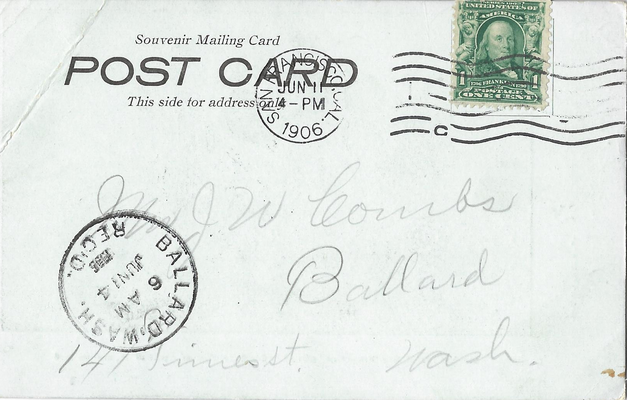 Souvenir Mailing Card
POST CARD
This side for address only
SAN FRANCISCO, CAL.
JUN 11
4-PM
1906
C
UNITED STATES OF
AMERICA
1 FRANKLIN 1
POSTAGE
ONE CENT
Mr J W Combs
Ballard
141 st. Wash.
BALLARD, WASH.
6 AM
JUN 14
1906
REC'D.